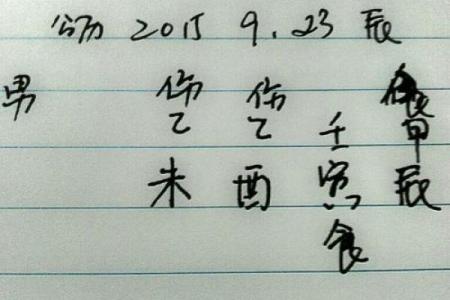 公历 2015 9.23 辰
男 伤 伤
乙 乙 壬 甲
未 酉 寅 辰
食